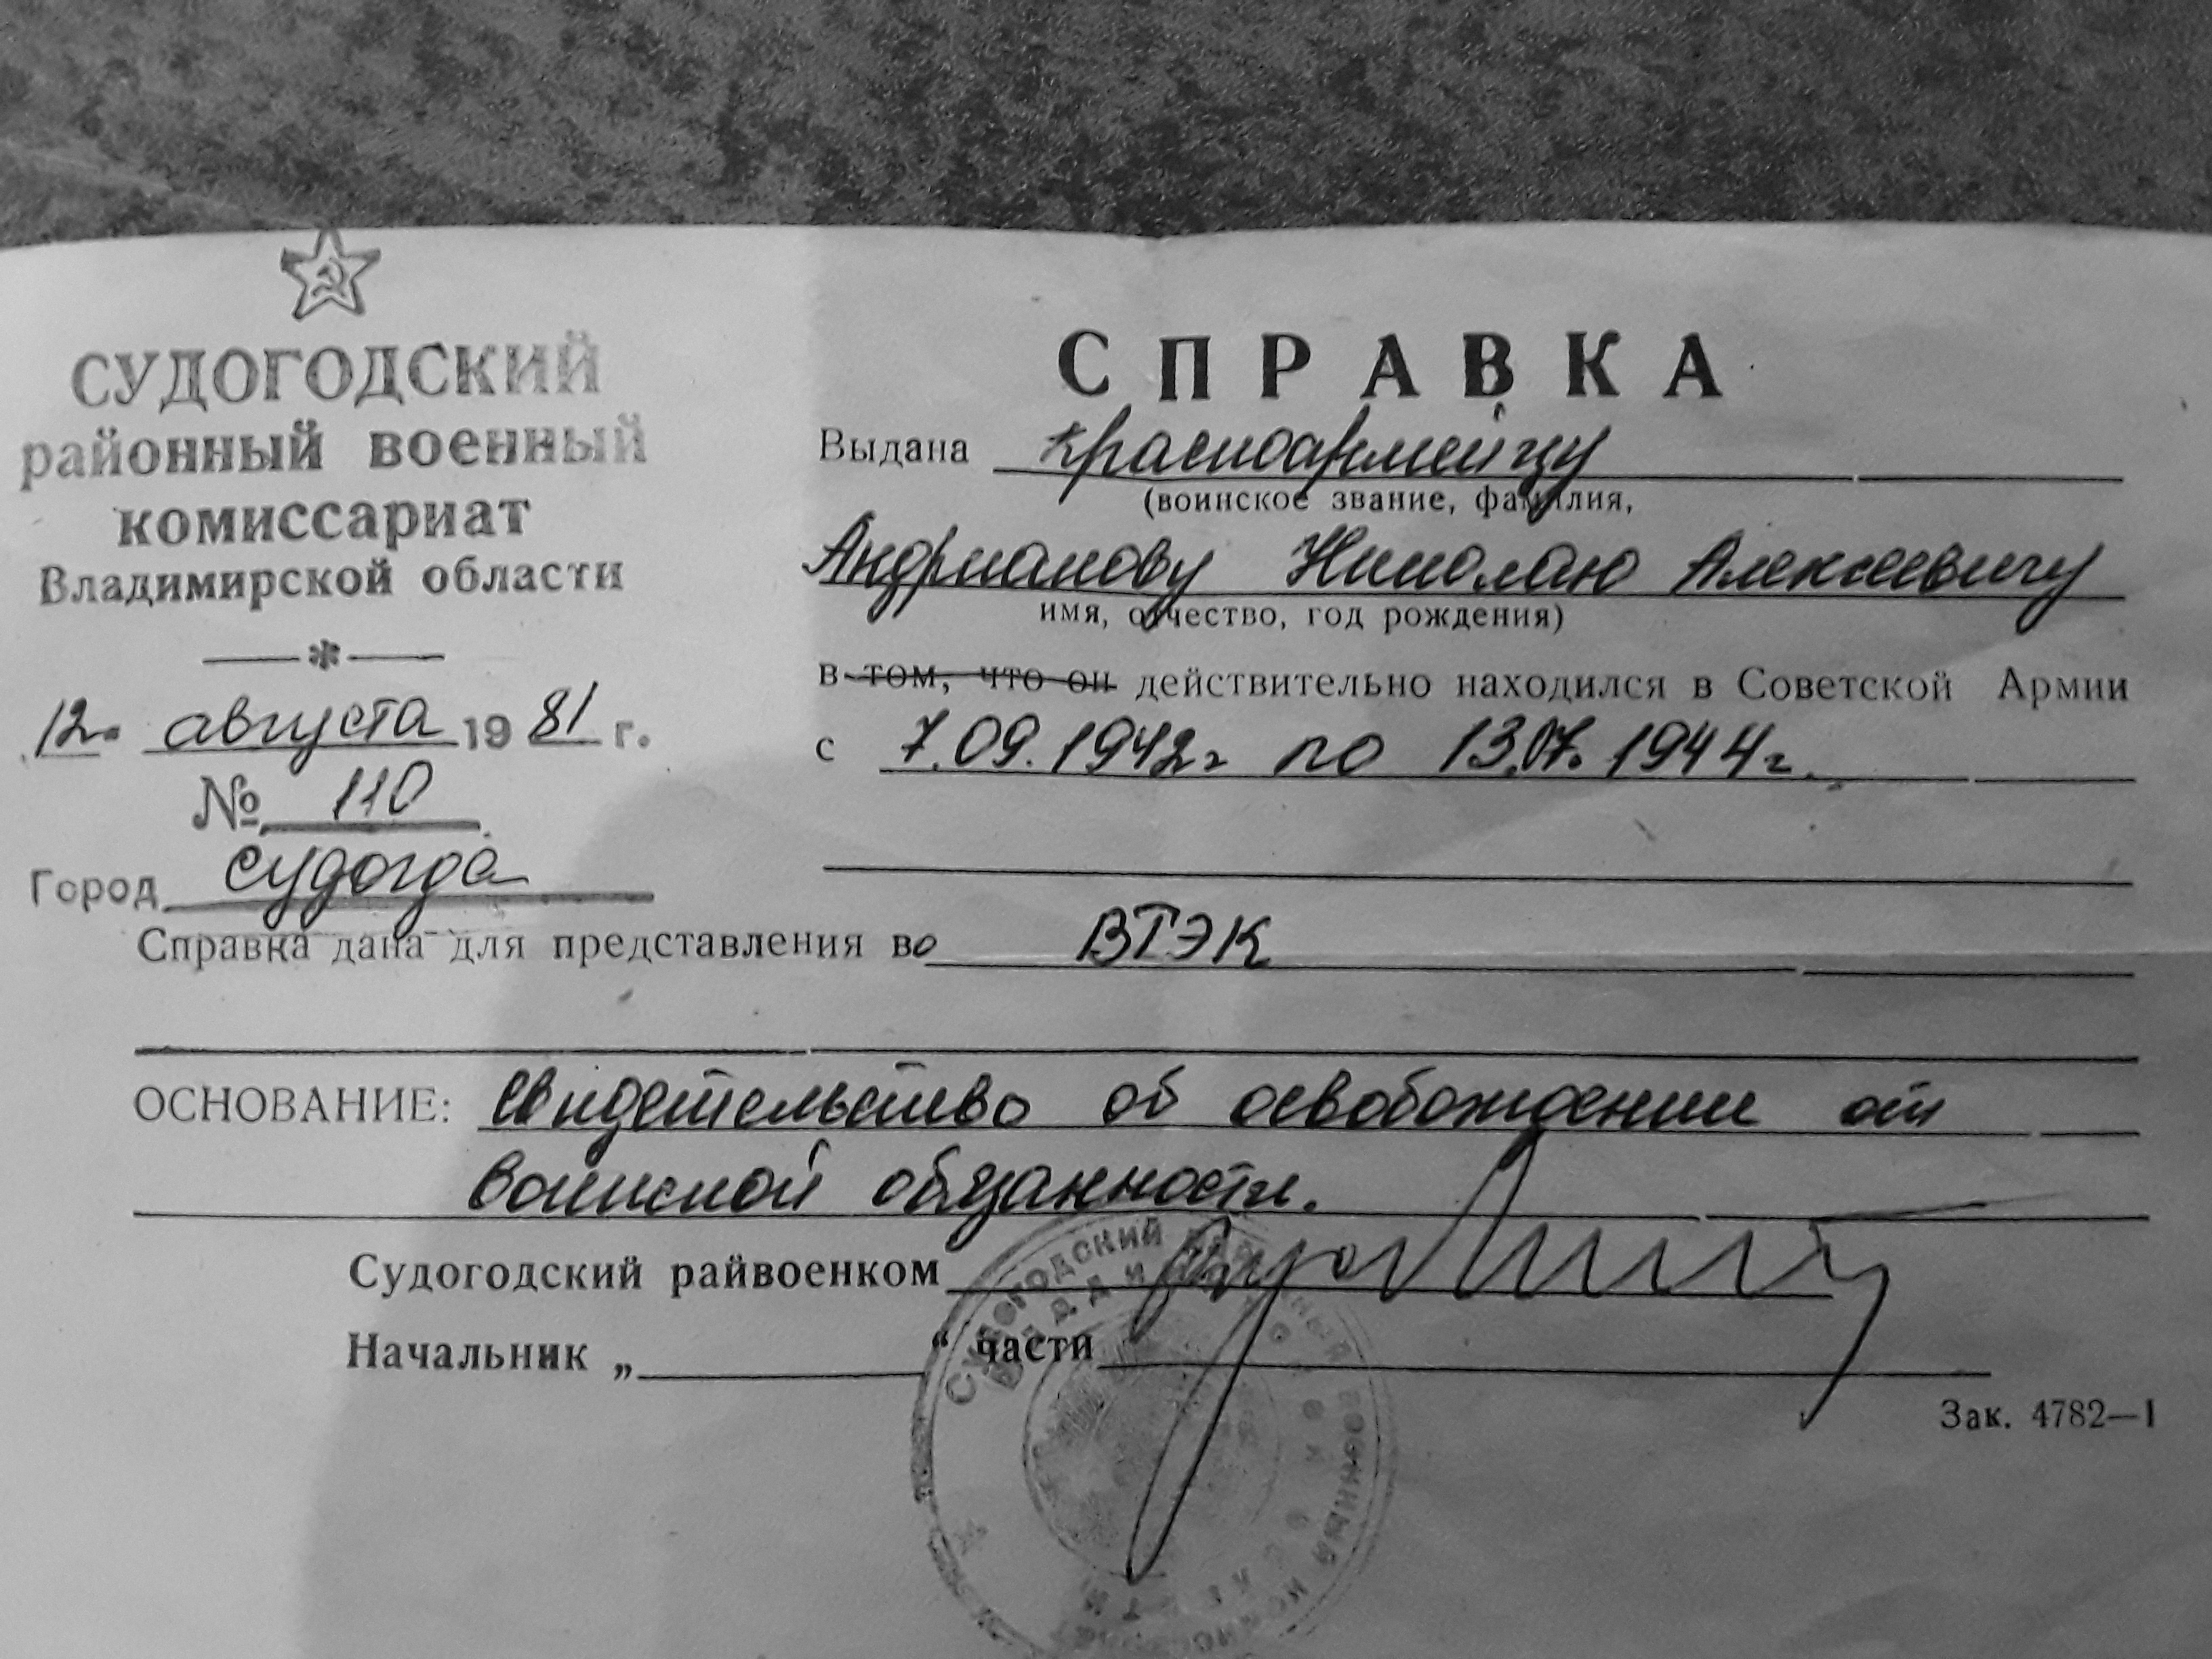 СУДОГОДСКИЙ
районный военный
комиссариат
Владимирской области
12. августа 1981 г.
№ 110
Город Судогда
СПРАВКА
Выдана красноармейцу
(воинское звание, фамилия,
Андрианову Николаю Алексеевичу
имя, отчество, год рождения)
в том, что он действительно находился в Советской Армии
с 7.09.1942г по 13.07.1944г.
Справка дана для представления во ВТЭК
ОСНОВАНИЕ: Свидетельство об освобождении от
воинской обязанности.
Судогодский райвоенком
Начальник „ “ части
Зак. 4782—1
СУДОГОДСКИЙ РАЙОННЫЙ ВОЕННЫЙ